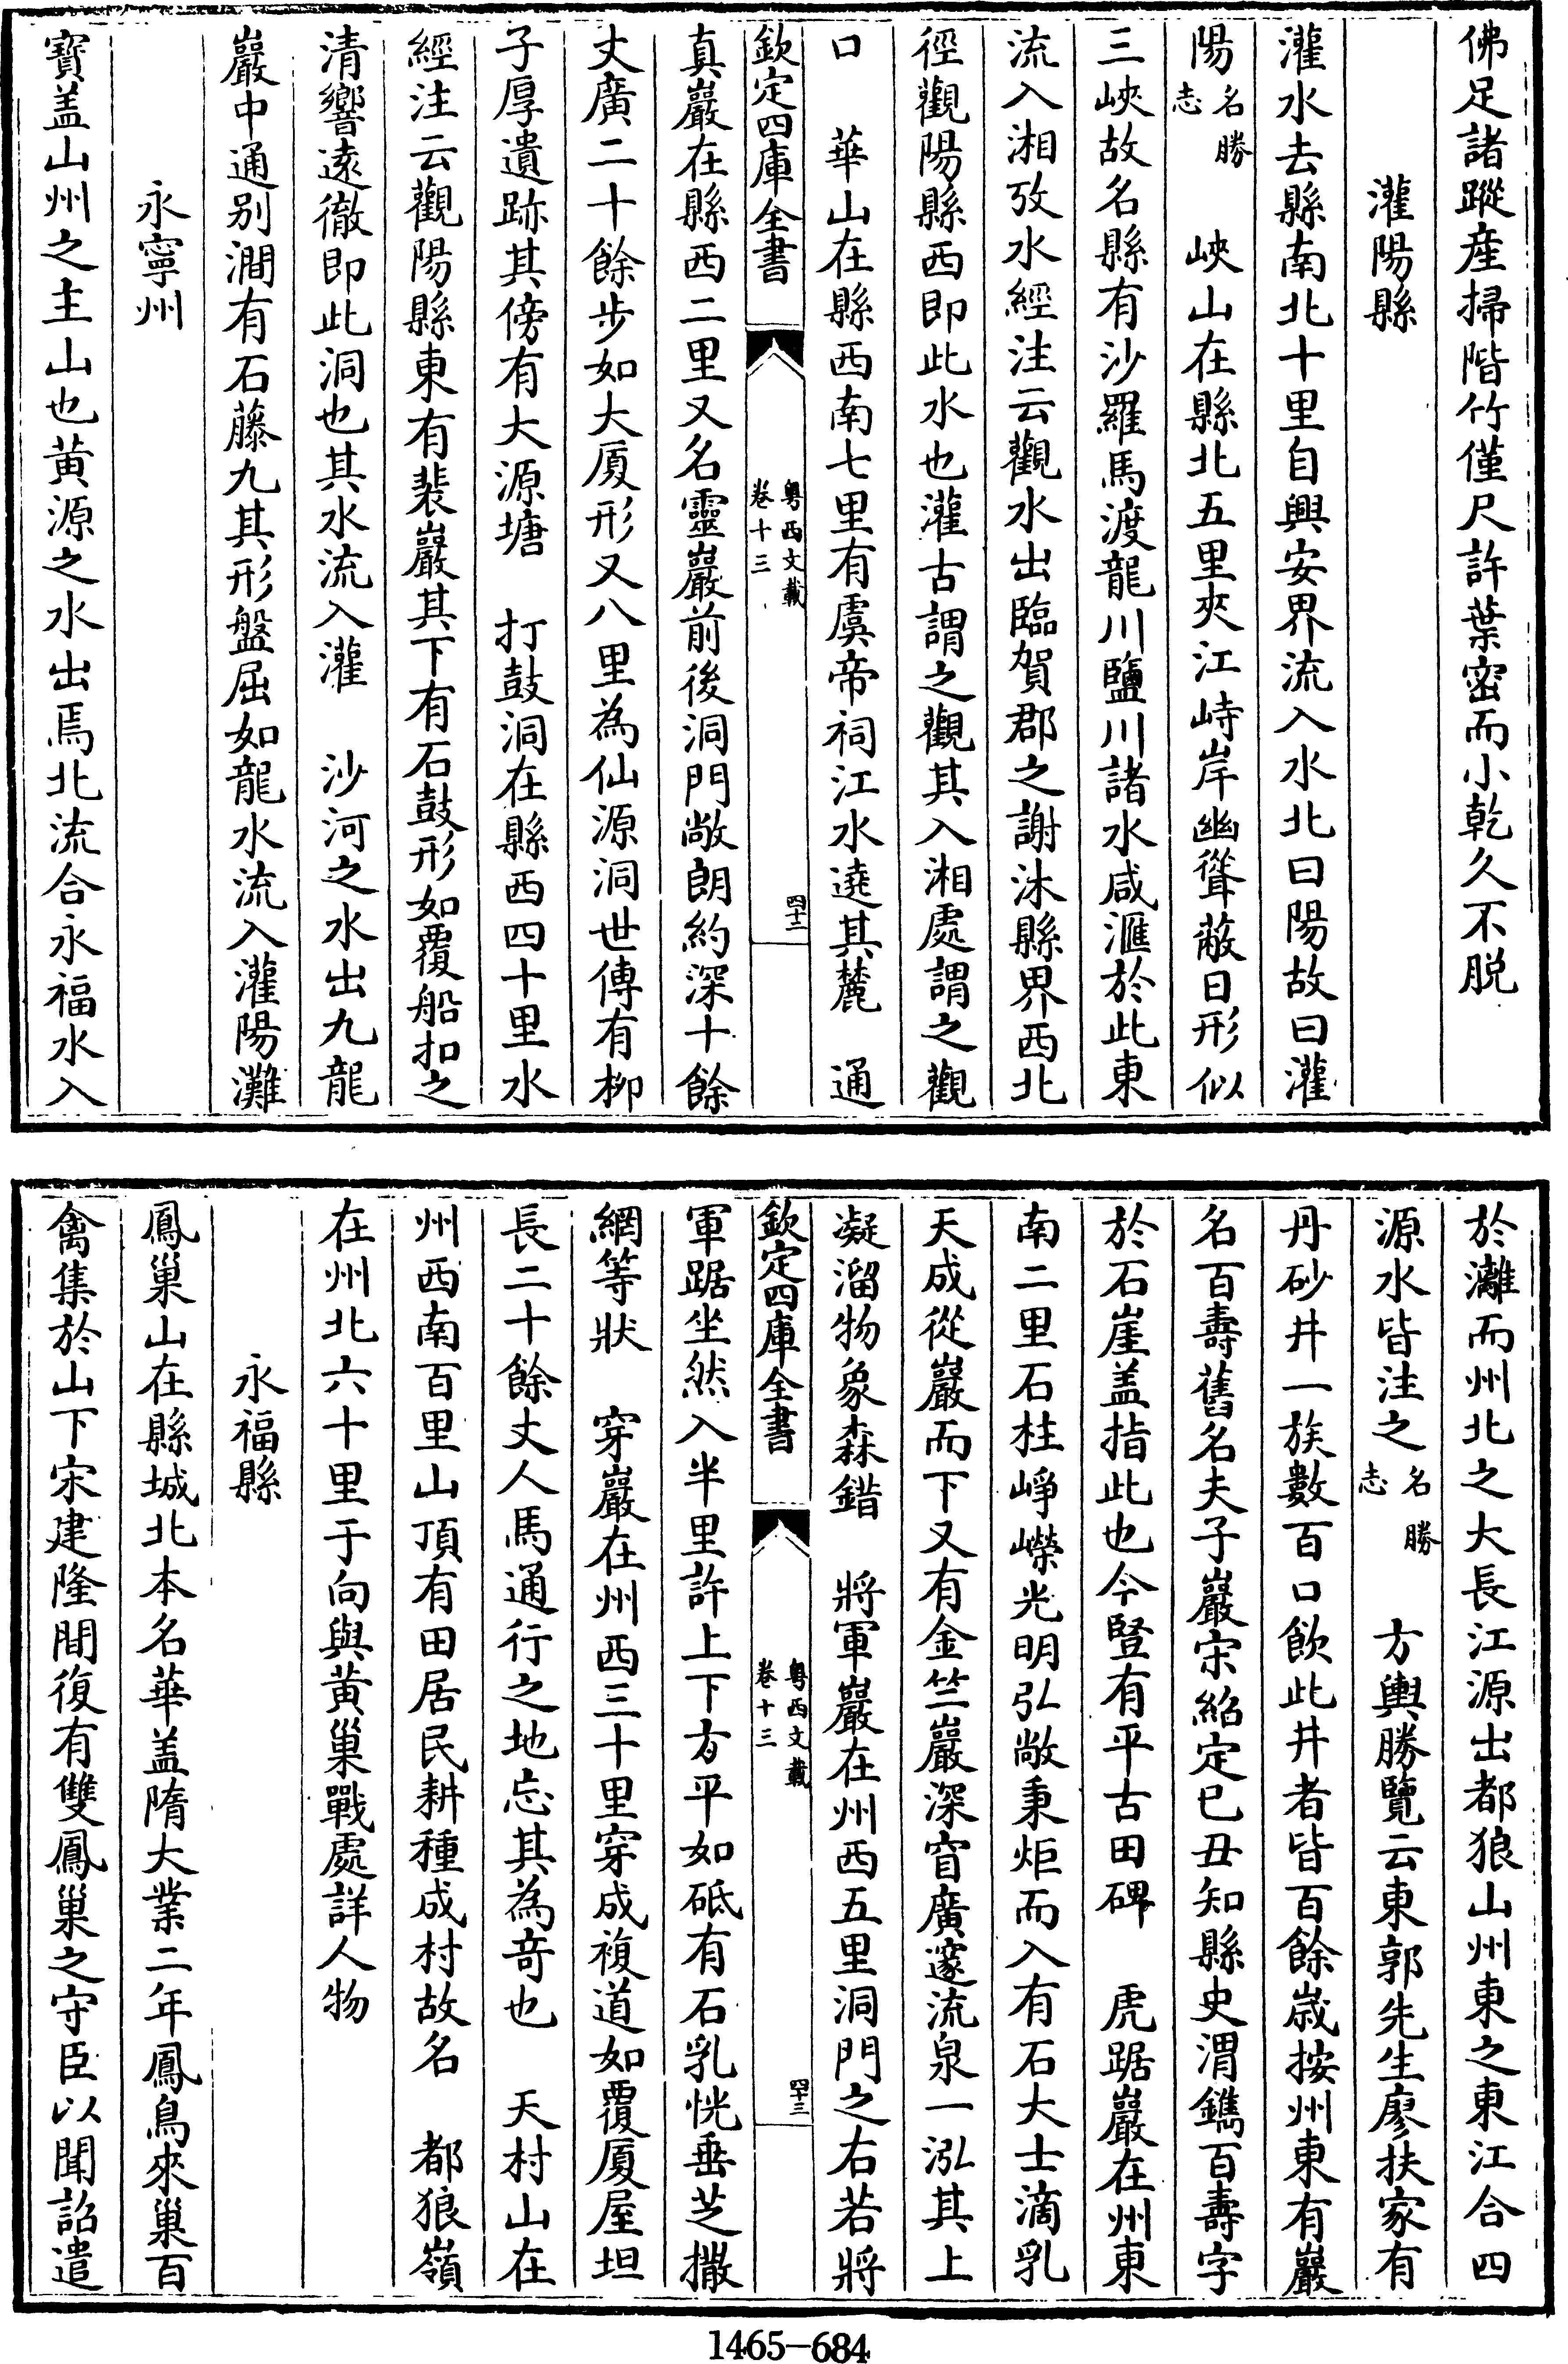 佛足諸蹤産掃階竹僅尺許葉密而小乾久不脱
灌陽縣
灌水去縣南北十里自興安界流入水北曰陽故曰灌
陽名勝志　峽山在縣北五里夾江峙岸幽聳蔽日形似
三峽故名縣有沙羅馬渡龍川鹽川諸水咸滙於此東
流入湘攷水經注云觀水出臨賀郡之謝沐縣界西北
徑觀陽縣西即此水也灌古謂之觀其入湘處謂之觀
口　華山在縣西南七里有虞帝祠江水遶其麓　通
欽定四庫全書　粤西文載卷十三　四十二
真巖在縣西二里又名靈巖前後洞門敞朗約深十餘
丈廣二十餘步如大厦形又八里為仙源洞世傳有柳
子厚遺跡其傍有大源塘　打鼓洞在縣西四十里水
經注云觀陽縣東有裴巖其下有石鼓形如覆船扣之
清響逺徹即此洞也其水流入灌　沙河之水出九龍
巖中通别澗有石藤九其形盤屈如龍水流入灌陽灘
永寧州
寳盖山州之主山也黄源之水出焉北流合永福水入
於灕而州北之大長江源出都狼山州東之東江合四
源水皆注之名勝志　方輿勝覽云東郭先生廖扶家有
丹砂井一族數百口飲此井者皆百餘歳按州東有巖
名百壽舊名夫子巖宋紹定已丑知縣史渭鐫百壽字
於石崖盖指此也今豎有平古田碑　虎踞巖在州東
南二里石柱崢嶸光明弘敞秉炬而入有石大士滴乳
天成從巖而下又有金竺巖深窅廣邃流泉一泓其上
凝溜物象森錯　將軍巖在州西五里洞門之右若將
欽定四庫全書　粤西文載卷十三　四十三
軍踞坐然入半里許上下方平如砥有石乳恍垂芝撒
網等狀　穿巖在州西三十里穿成複道如覆厦屋坦
長二十餘丈人馬通行之地忘其為竒也　天村山在
州西南百里山頂有田居民耕種成村故名　都狼嶺
在州北六十里于向與黄巢戰處詳人物
永福縣
鳳巢山在縣城北本名華盖隋大業二年鳳鳥來巢百
禽集於山下宋建隆間復有雙鳳巢之守臣以聞詔遣
1465-684